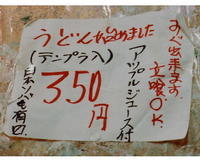 うどん始めました
(テンプラ入)
350円
アップルジュース付
すぐ出来ます。
立喰O.K.
日本ソバも有〼